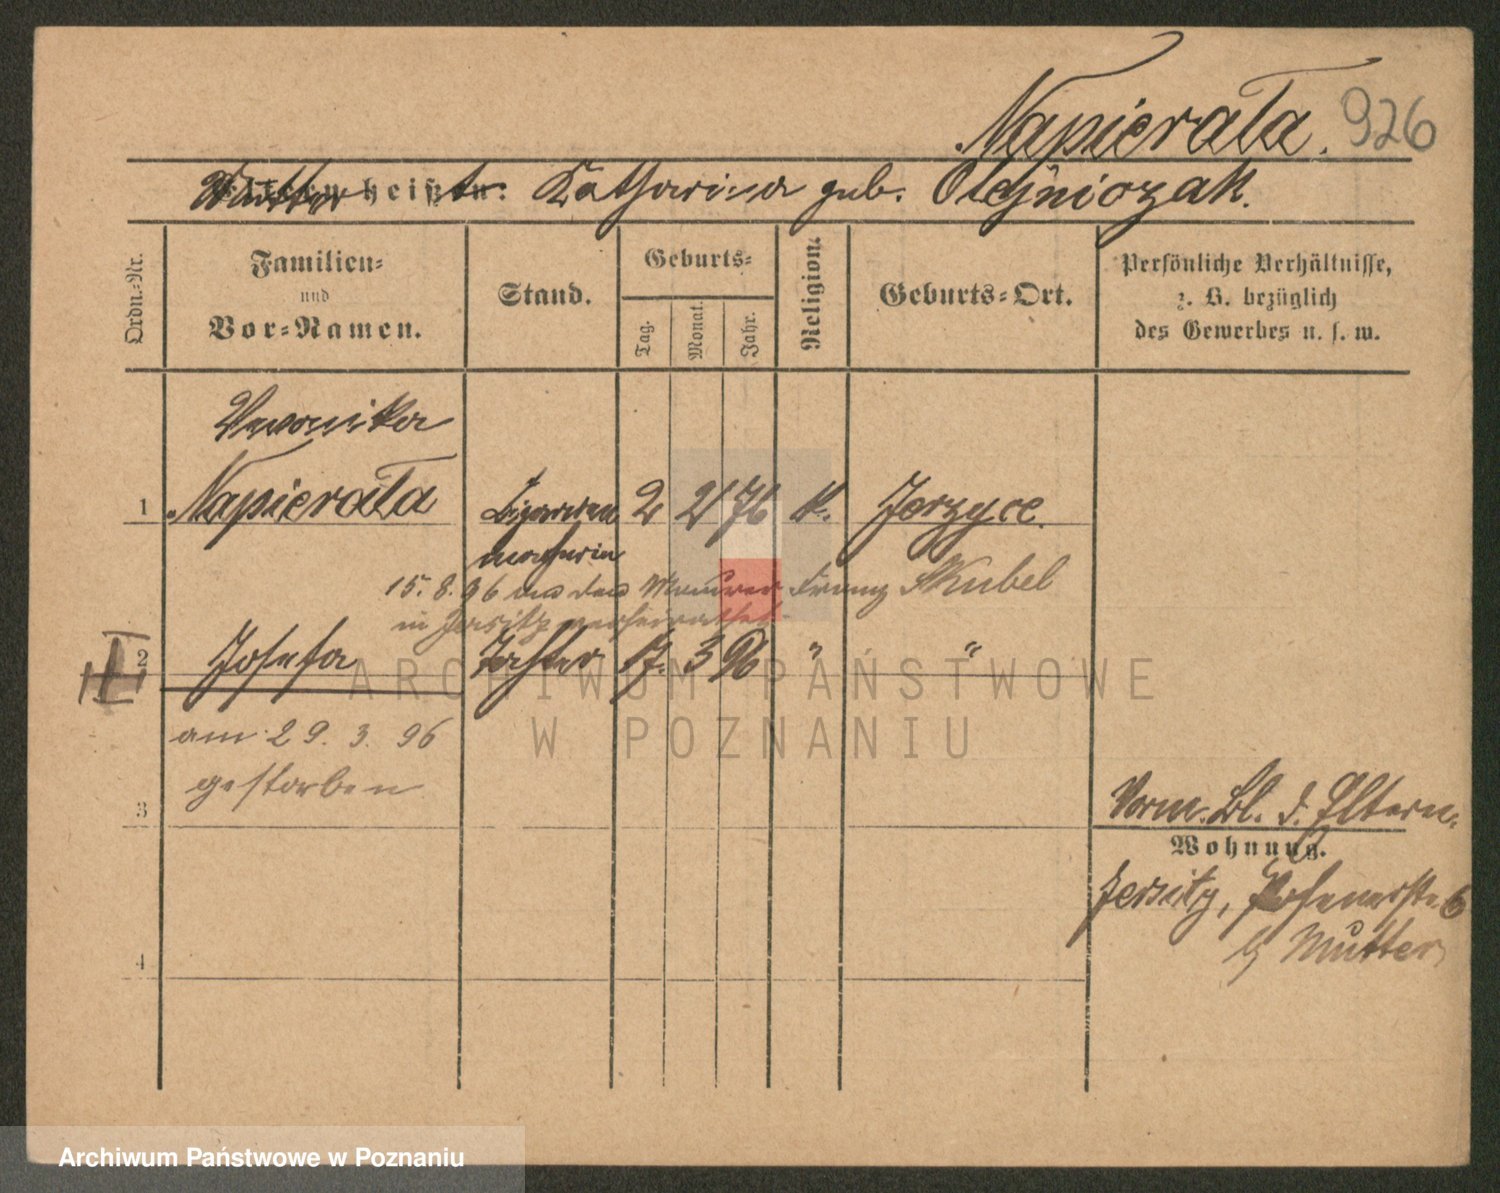 Napierala. 926
Mutter heißt: Katharina geb. Olejniczak.
Ordn.=Nr.
Familien=
und
Vor=Namen.
Stand.
Geburts=
Tag.
Monat.
Jahr.
Religion.
Geburts=Ort.
Persönliche Verhältnisse,
z. B. bezüglich
des Gewerbes u. s. w.
Veronika
1 Napierala Cigarretten 2 2 76 K. Jerzyce.
macherin
15. 8. 96 an den Maurer Franz Skubel
in Jersitz verheirathet
2 Josefa Tochter 17. 3 96 " "
am 29. 3. 96
gestorben
3
Vorm. Bl. d. Eltern.
Wohnung.
Jersitz, Posenerstr. 6
b Mutter
4
ARCHIWUM PAŃSTWOWE
W POZNANIU
Archiwum Państwowe w Poznaniu